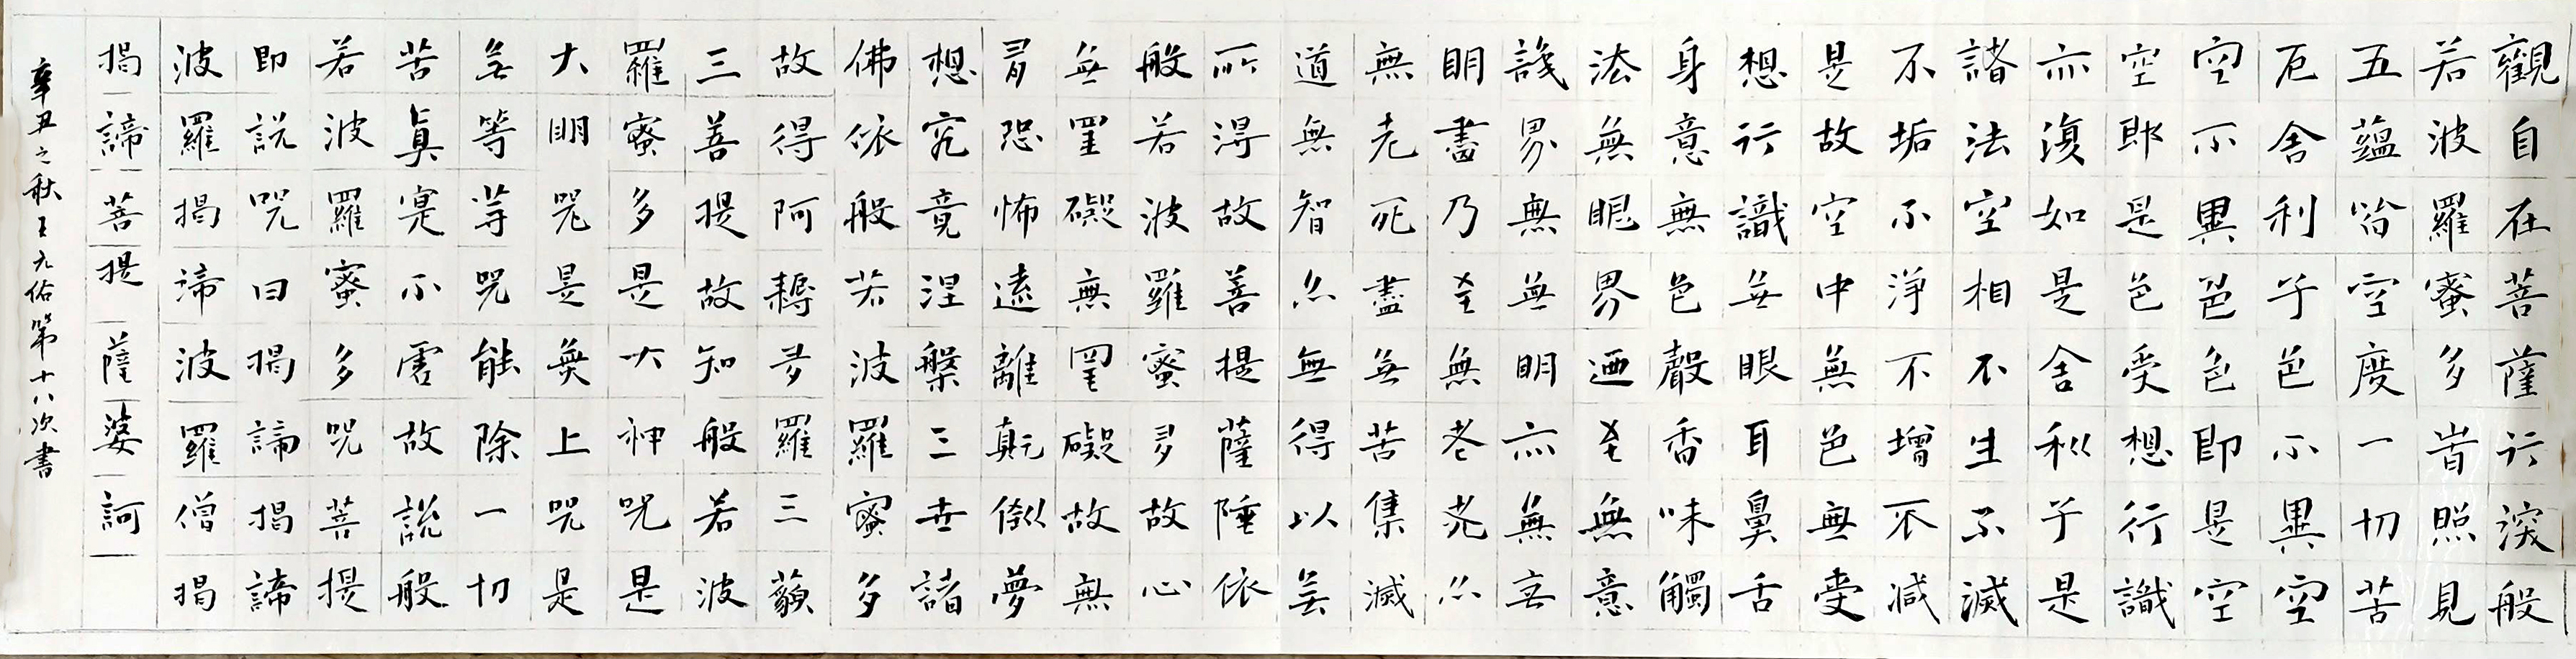 觀自在菩薩行深般
若波羅蜜多時照見
五蘊皆空度一切苦
厄舍利子色不異空
空不異色色即是空
空即是色受想行識
亦復如是舍利子是
諸法空相不生不滅
不垢不淨不增不減
是故空中無色無受
想行識無眼耳鼻舌
身意無色聲香味觸
法無眼界迺至無意
識界無無明亦無無
明盡乃至無老死亦
無老死盡無苦集滅
道無智亦無得以無
所得故菩提薩埵依
般若波羅蜜多故心
無罣礙無罣礙故無
有恐怖遠離顛倒夢
想究竟涅槃三世諸
佛依般若波羅蜜多
故得阿耨多羅三藐
三菩提故知般若波
羅蜜多是大神咒是
大明咒是無上咒是
無等等咒能除一切
苦真實不虛故說般
若波羅蜜多咒菩提
即說咒曰揭諦揭諦
波羅揭諦波羅僧揭
揭諦菩提薩婆訶
辛丑之秋王元佑第十八次書